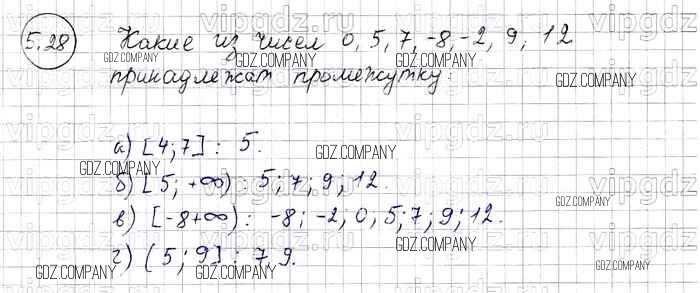 5.28 Какие из чисел 0, 5, 7, -8, -2, 9, 12
принадлежат промежутку:
а) [4; 7] : 5.
б) [5; +∞) : 5; 7; 9; 12.
в) [-8+∞) : -8; -2; 0, 5; 7; 9; 12.
г) (5; 9] : 7, 9.
GDZ.COMPANY
vipgdz